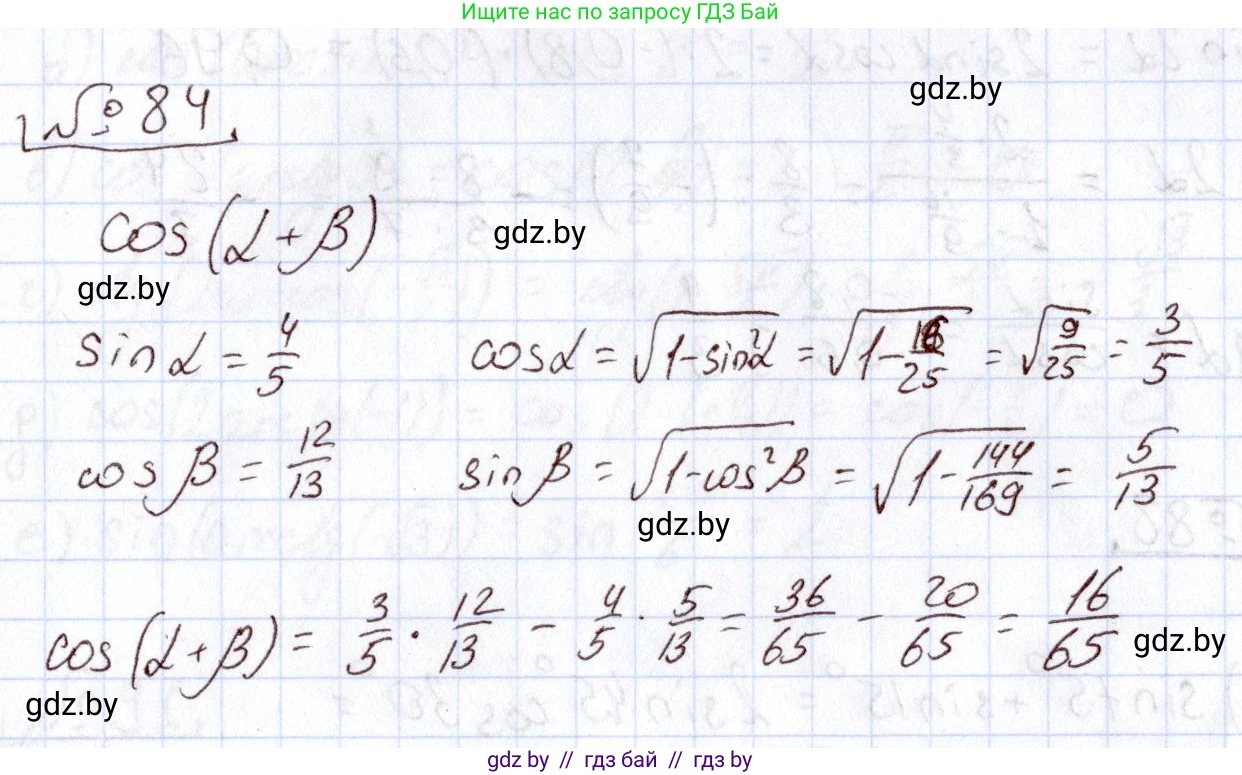 Ищите нас по запросу ГДЗ Бай
№ 84
gdz.by
cos(α+β)
gdz.by
gdz.by
sin α = 4/5 cos α = √(1-sin²α) = √(1-16/25) = √(9/25) = 3/5
cos β = 12/13 sin β = √(1-cos²β) = √(1-144/169) = 5/13
gdz.by
cos(α+β) = 3/5 · 12/13 - 4/5 · 5/13 = 36/65 - 20/65 = 16/65
gdz.by
gdz.by
gdz by // гдз бай // гдз by